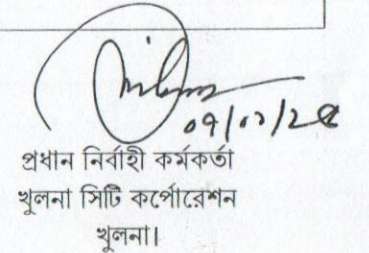 ০৭/০১/২৫
প্রধান নির্বাহী কর্মকর্তা
খুলনা সিটি কর্পোরেশন
খুলনা।